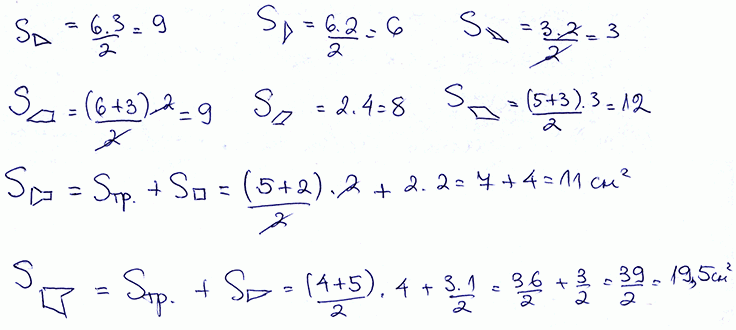 S = 6.3/2 = 9 S = 6.2/2 = 6 S = 3.2/2 = 3
S = (6+3).2/2 = 9 S = 2.4 = 8 S = (5+3).3/2 = 12
S = Sтр. + S = (5+2)/2 . 2 + 2.2 = 7 + 4 = 11 см²
S = Sтр. + S = (4+5)/2 . 4 + 3.1/2 = 36/2 + 3/2 = 39/2 = 19,5 см²